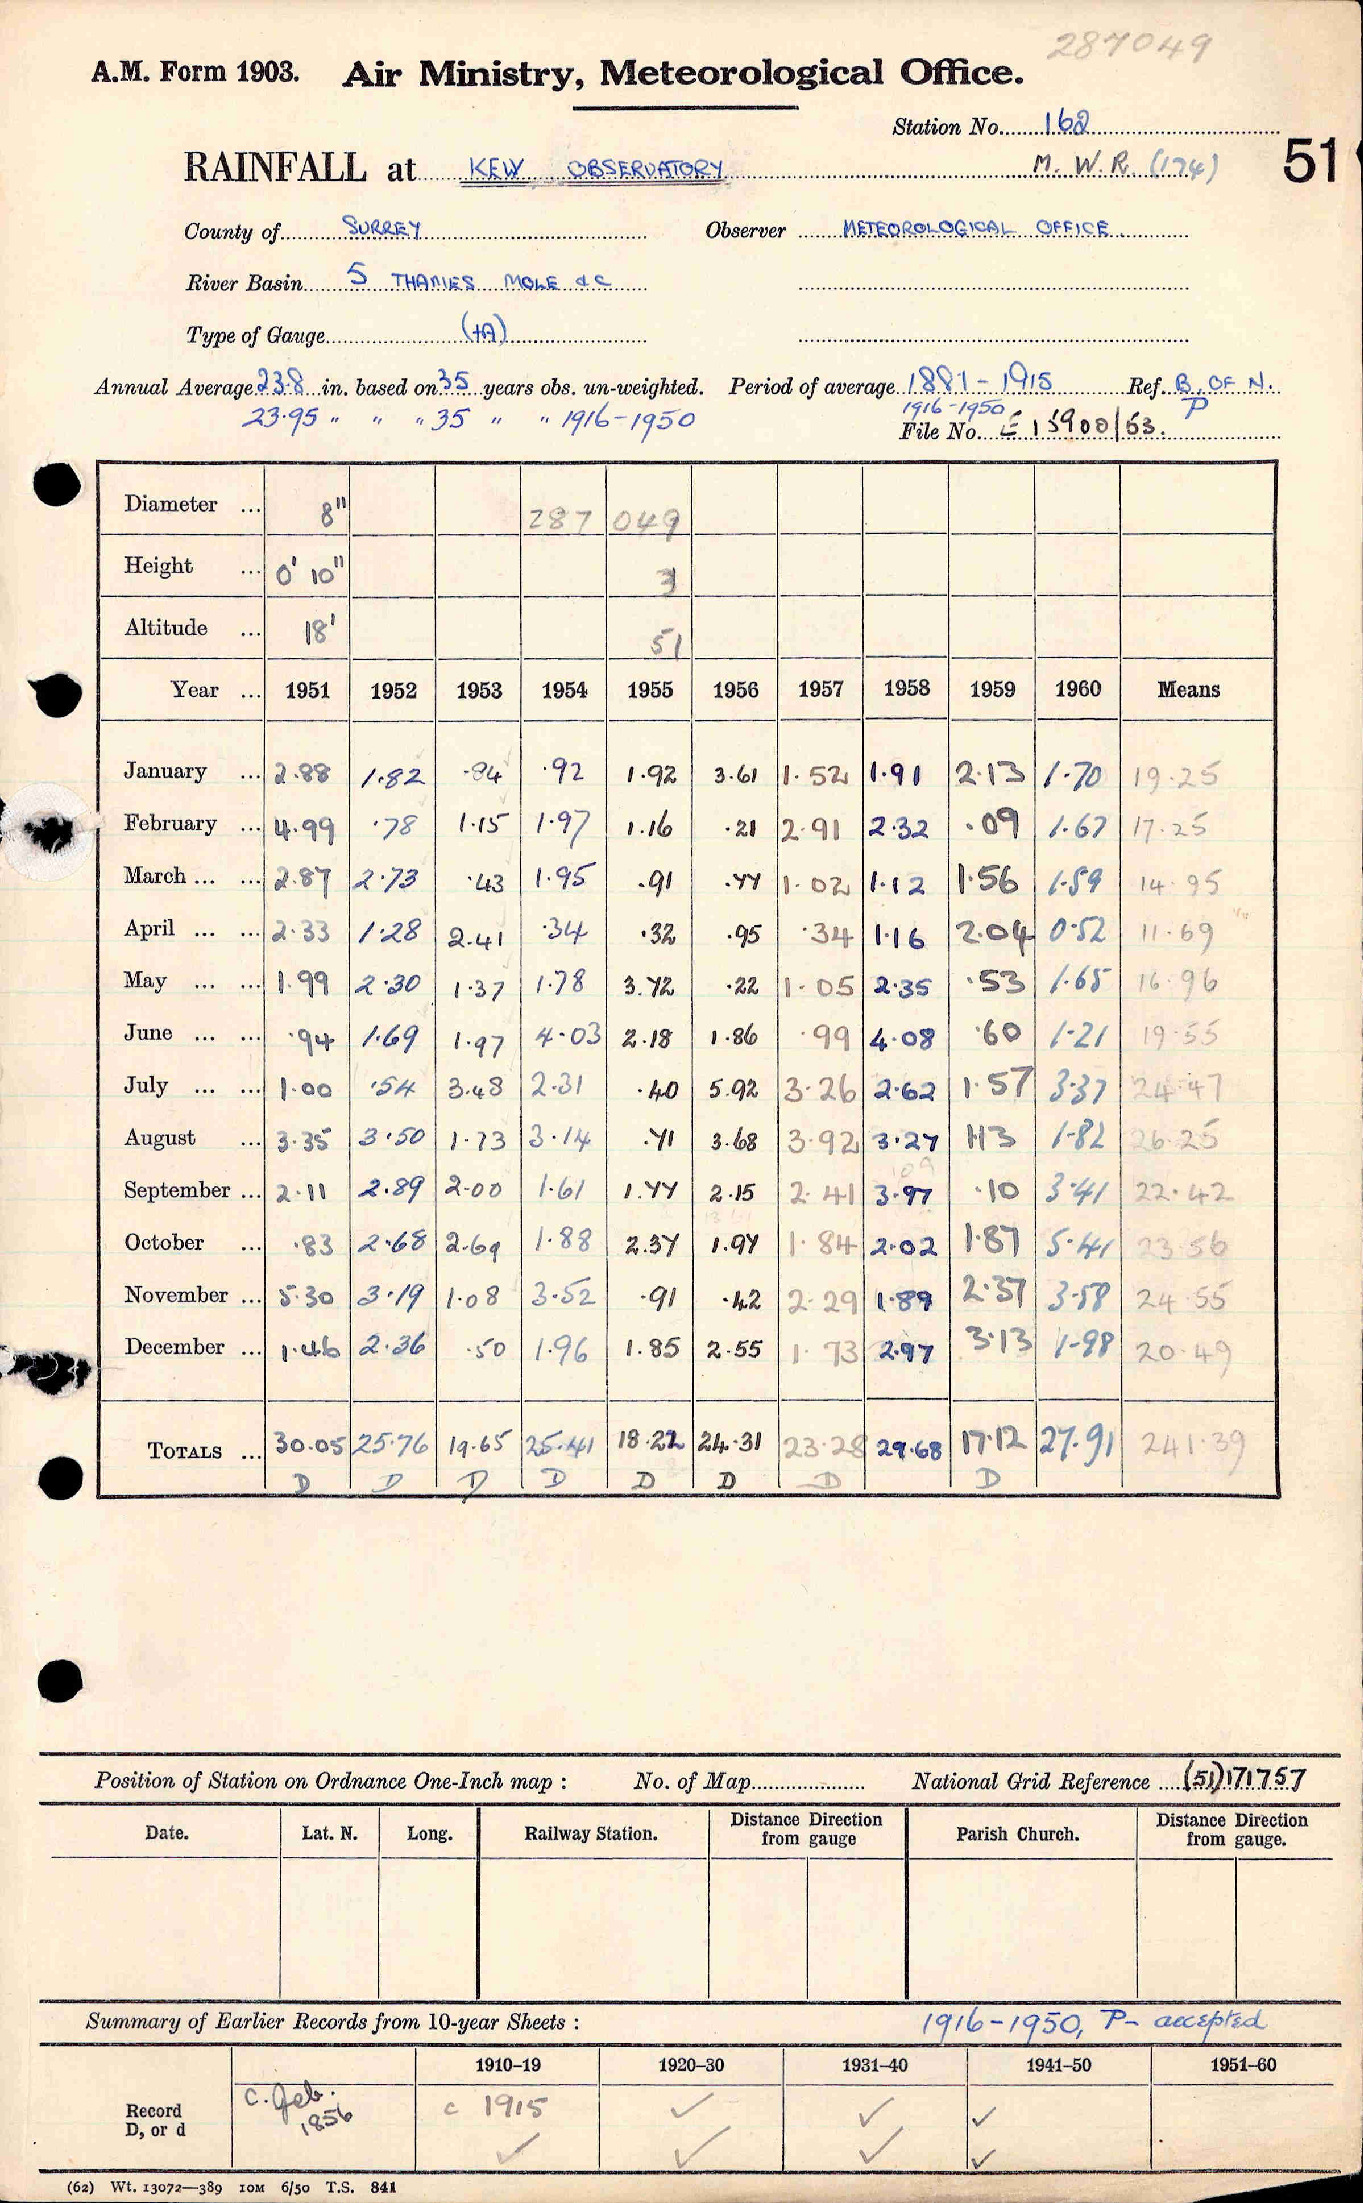 287049
A.M. Form 1903. Air Ministry, Meteorological Office.
Station No. 162
RAINFALL at KEW OBSERVATORY M.W.R. (174)
51
County of SURREY Observer METEOROLOGICAL OFFICE.
River Basin 5 THAMES MOLE &C
Type of Gauge (tA)
Annual Average 23.8 in. based on 35 years obs. un-weighted. Period of average 1881-1915 Ref. B. OF N.
23.95 " " " 35 " " 1916-1950 1916-1950 P
File No. E 15900/53.
Diameter ... 8" 287 049
Height ... 0' 10" 3
Altitude ... 18' 51
Year ... 1951 1952 1953 1954 1955 1956 1957 1958 1959 1960 Means
January ... 2.88 1.82 .84 .92 1.92 3.61 1.52 1.91 2.13 1.70 19.25
February ... 4.99 .78 1.15 1.97 1.16 .21 2.91 2.32 .09 1.67 17.25
March ... ... 2.87 2.73 .43 1.95 .91 .77 1.02 1.12 1.56 1.59 14.95
April ... ... 2.33 1.28 2.41 .34 .32 .95 .34 1.16 2.04 0.52 11.69
May ... ... 1.99 2.30 1.37 1.78 3.72 .22 1.05 2.35 .53 1.65 16.96
June ... ... .94 1.69 1.97 4.03 2.18 1.86 .99 4.08 .60 1.21 19.55
July ... ... 1.00 .54 3.48 2.31 .40 5.92 3.26 2.62 1.57 3.37 24.47
August ... 3.35 3.50 1.73 3.14 .71 3.68 3.92 3.27 1.13 1.82 26.25
September ... 2.11 2.89 2.00 1.61 1.77 2.15 2.41 3.97 .10 3.41 22.42
October ... .83 2.68 2.69 1.88 2.37 1.97 1.84 2.02 1.87 5.41 23.56
November ... 5.30 3.19 1.08 3.52 .91 .42 2.29 1.89 2.37 3.58 24.55
December ... 1.46 2.36 .50 1.96 1.85 2.55 1.73 2.97 3.13 1.98 20.49
TOTALS ... 30.05 25.76 19.65 25.41 18.22 24.31 23.28 29.68 17.12 27.91 241.39
D D D D D D D D
Position of Station on Ordnance One-Inch map : No. of Map National Grid Reference (51)171757
Date. Lat. N. Long. Railway Station. Distance from gauge Direction Parish Church. Distance from gauge. Direction
Summary of Earlier Records from 10-year Sheets : 1916-1950, P- accepted
1910–19 1920–30 1931–40 1941–50 1951–60
Record D, or d c. Feb. 1856 c 1915 ✓ ✓ ✓
✓ ✓ ✓ ✓
(62) Wt. 13072—389 10M 6/50 T.S. 841